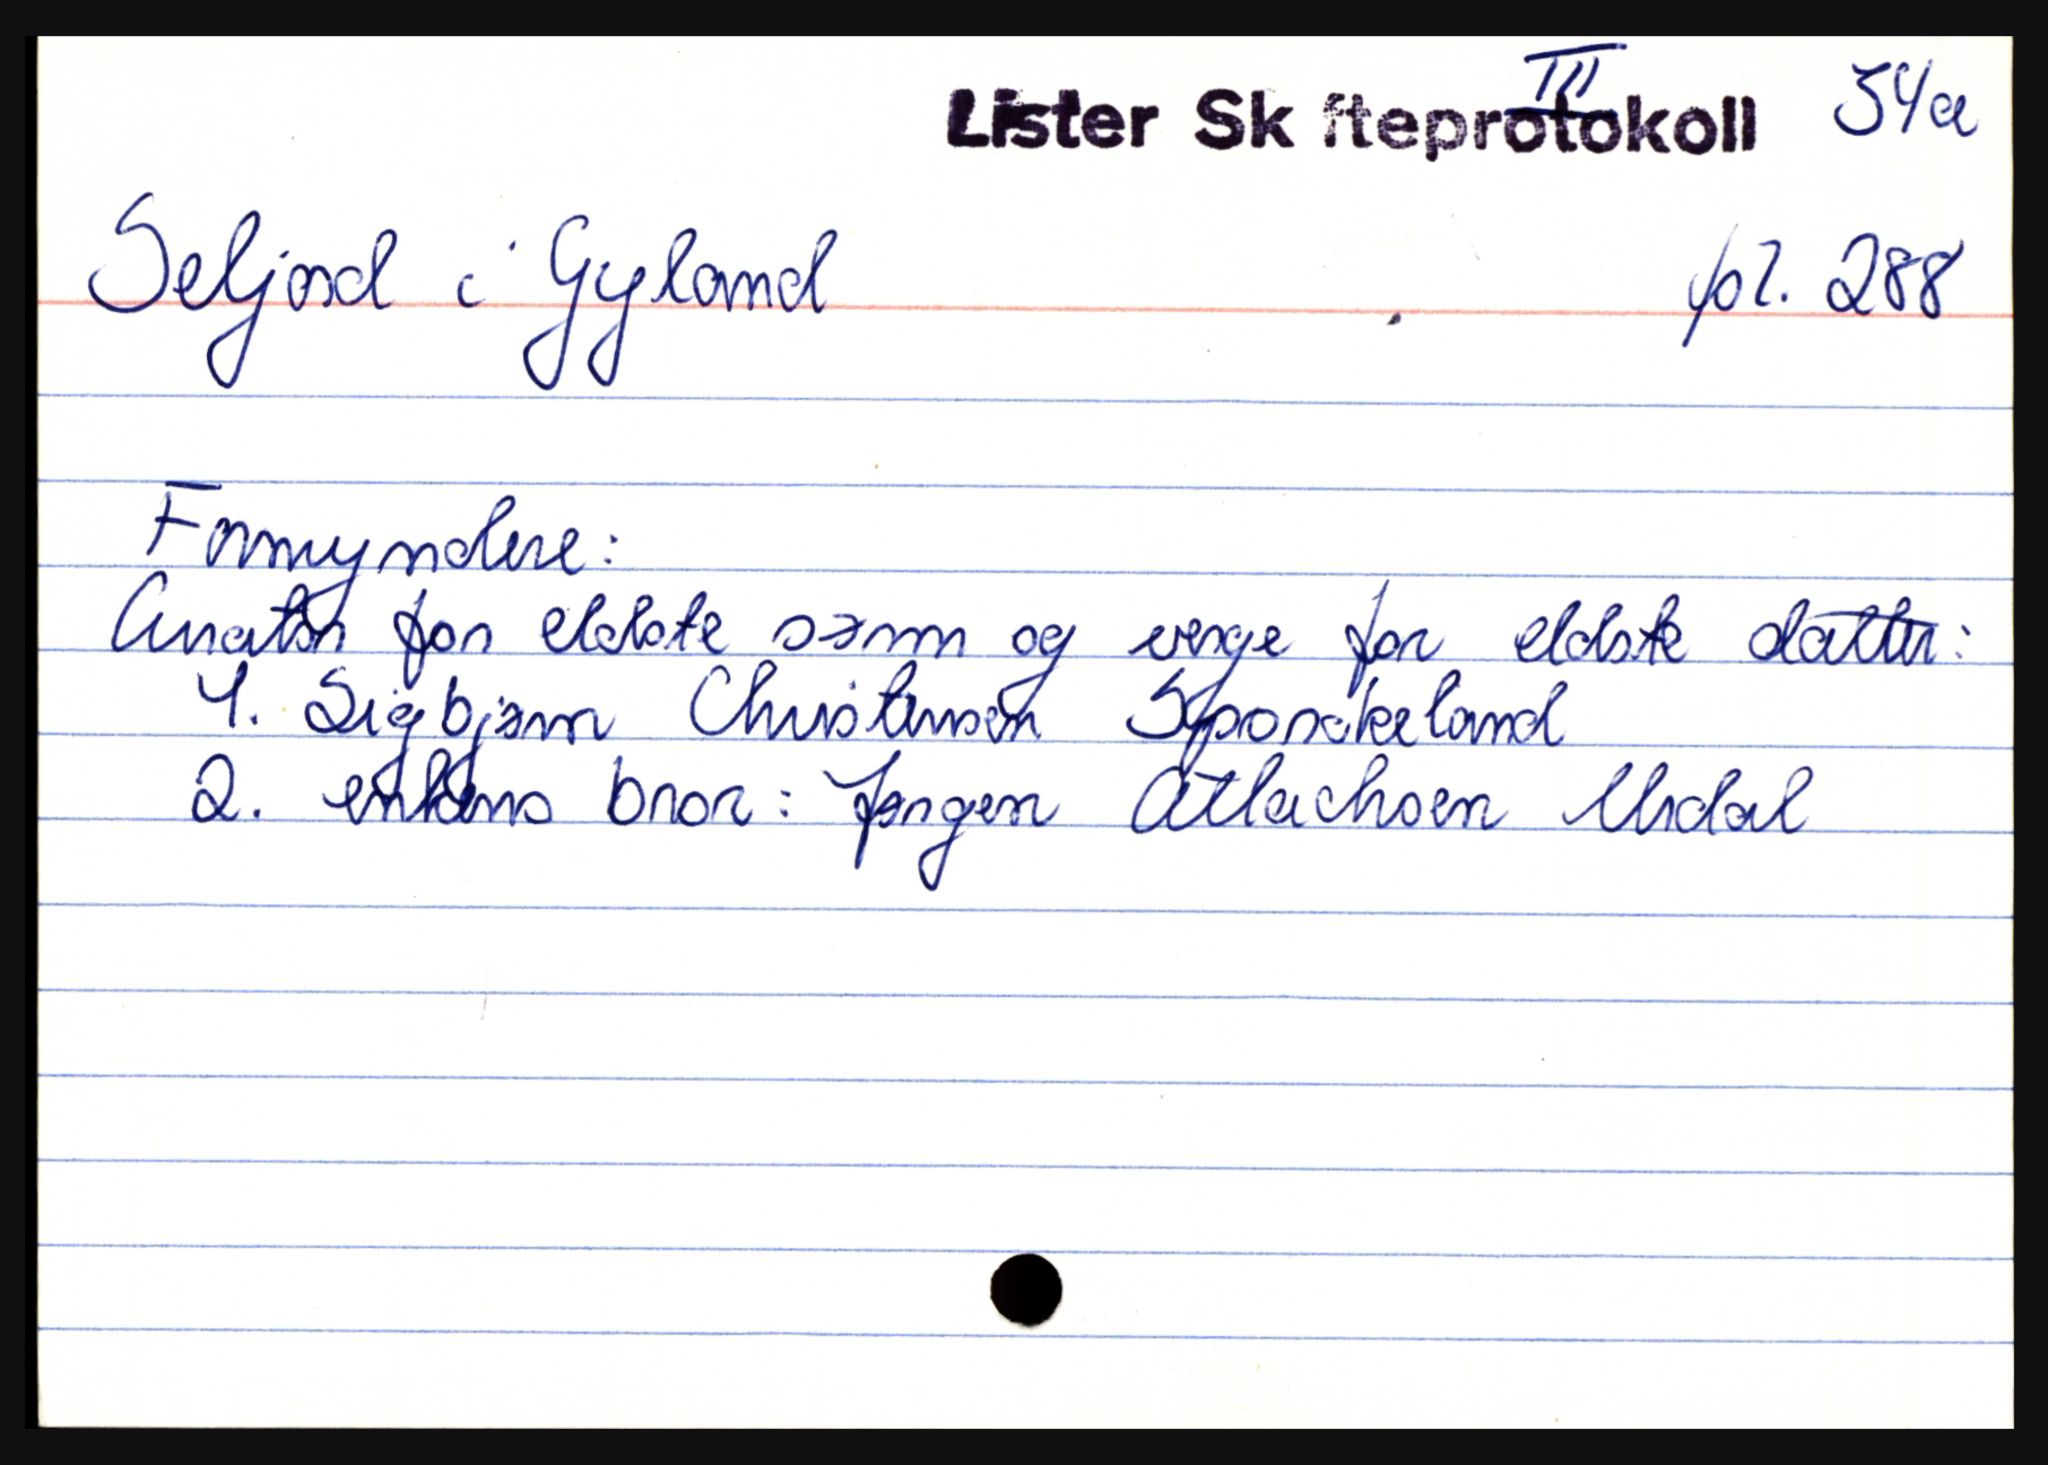 III 34a
Lister Sk fteprotokoll
Seljord i Gyland fol. 288
Formyndere:
Curator for eldste sønn og verge for eldste datter:
1. Sigbjørn Christensen Sporckeland
2. enkens bror: Jørgen Atlachsen Urdal